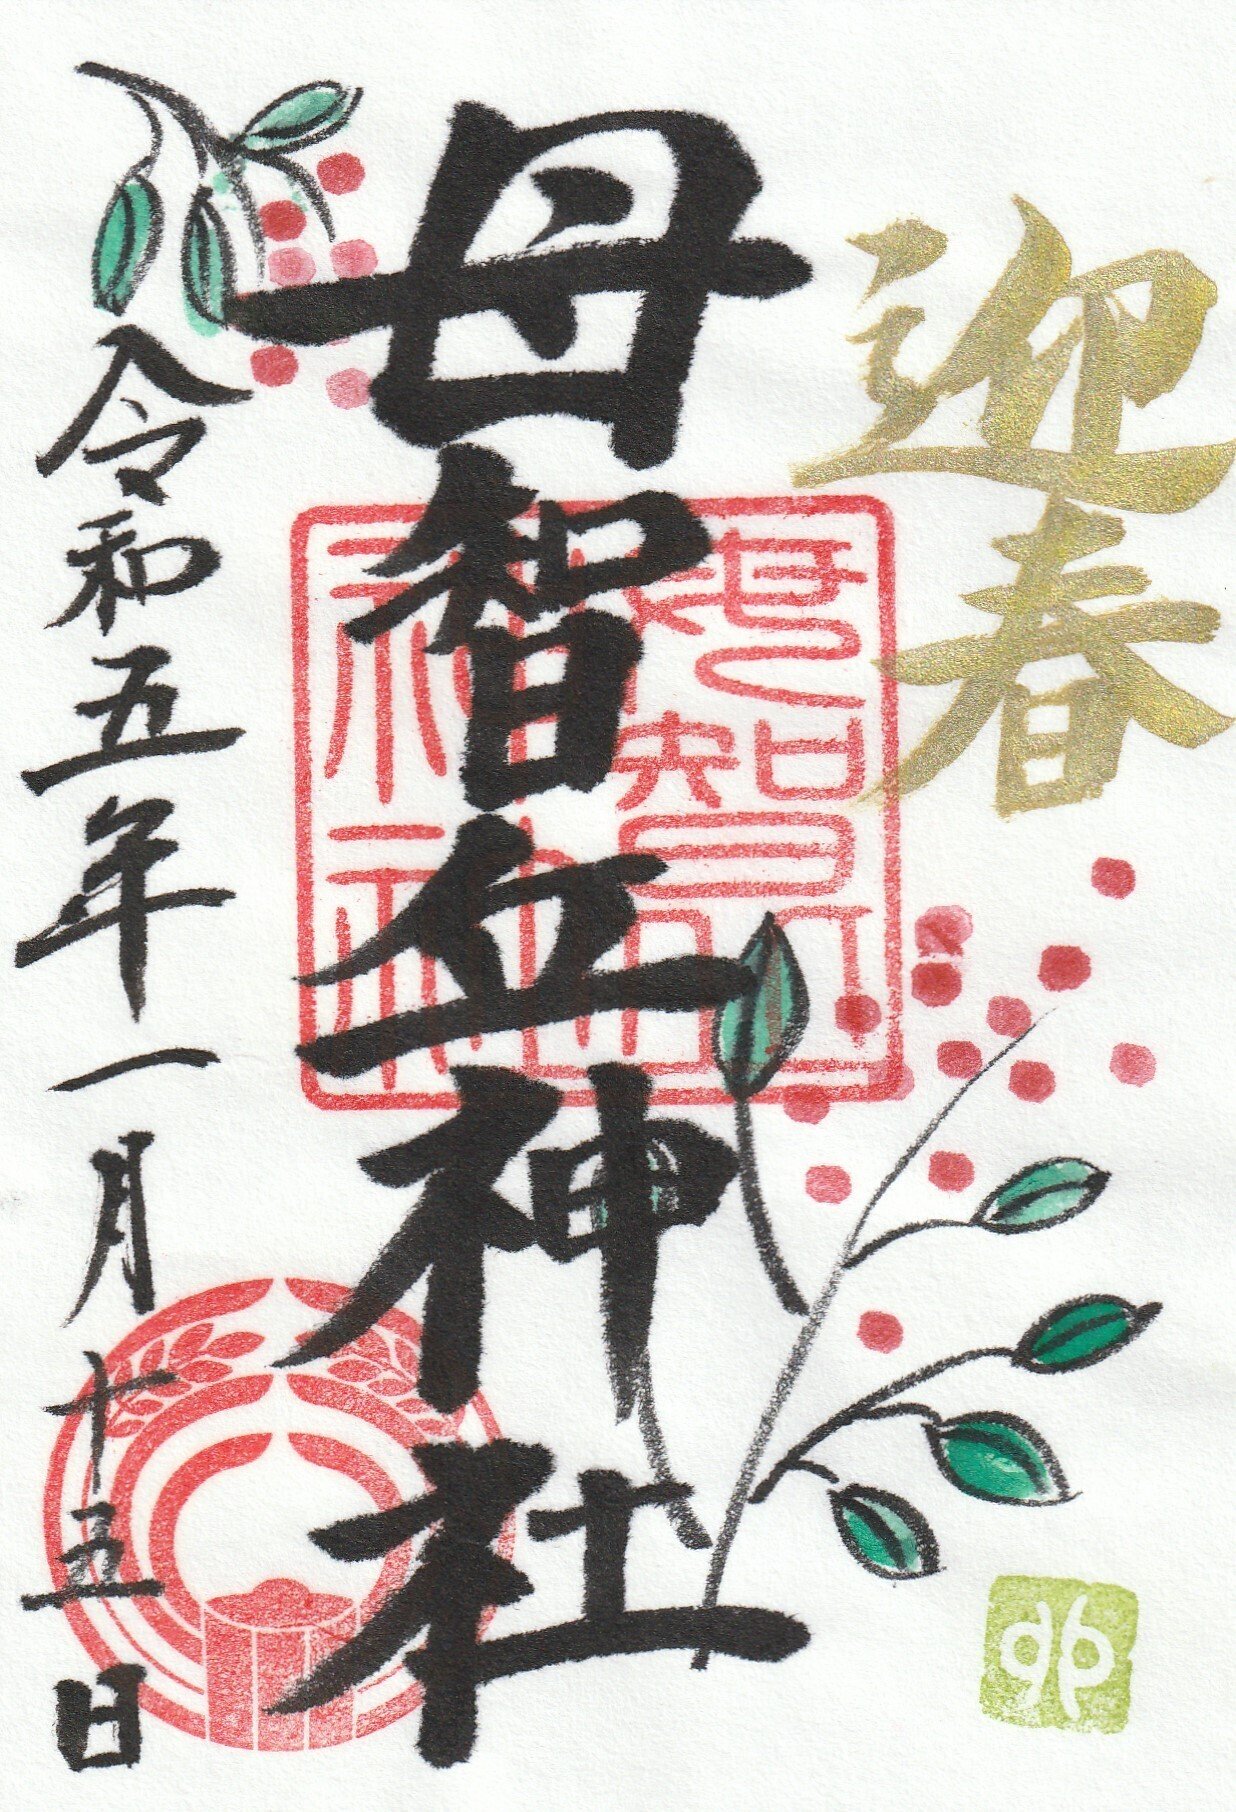 迎春
母智丘神社
母智丘
神社
令和五年一月十五日
卯